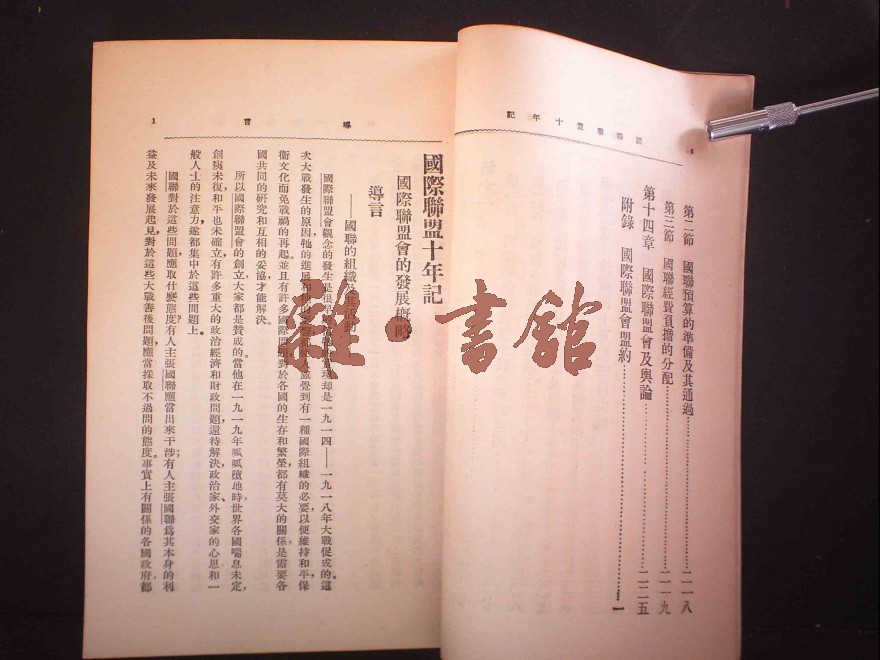 國際聯盟十年記
第二節　國聯預算的準備及其通過……二一八
第三節　國聯經費負擔的分配……二一九
第十四章　國際聯盟會及輿論……二二五
附錄　國際聯盟會盟約……一
導言
1
國際聯盟十年記
國際聯盟會的發展概略
導言
——國聯的組織及其活動
國際聯盟會觀念的發生是很早 却是一九一四——一九一八年大戰促成的。這
次大戰發生的原因,牠的進展和 感覺到有一種國際組織的必要,以便維持和平,保
衞文化而免戰禍的再起。並且有許多國際問題對於各國的生存和繁榮,都有莫大的關係,是需要各
國共同的研究和互相的妥協,才能解決。
所以國際聯盟會的創立,大家都是贊成的。當他在一九一九年呱呱墮地時,世界各國喘息未定,
創痍未復,和平也未確立,有許多重大的政治經濟和財政問題,還待解決,政治家、外交家的心思和一
般人士的注意力,遂都集中於這些問題上。
國聯對於這些問題,應取什麼態度?有人主張國聯應當出來干涉;有人主張國聯爲其本身的利
益及未來發展起見,對於這些大戰善後問題,應當採取不過問的態度。事實上有關係的各國政府都
雜·書館